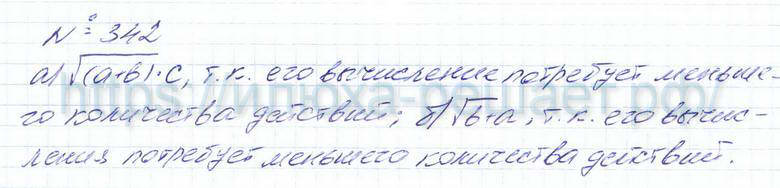 № 342
а) √(a+b)·c, т.к. его вычисление потребует меньше-
го количества действий; б) √b+a, т.к. его вычис-
ления потребует меньшего количества действий.
https://илюха-решает.рф/